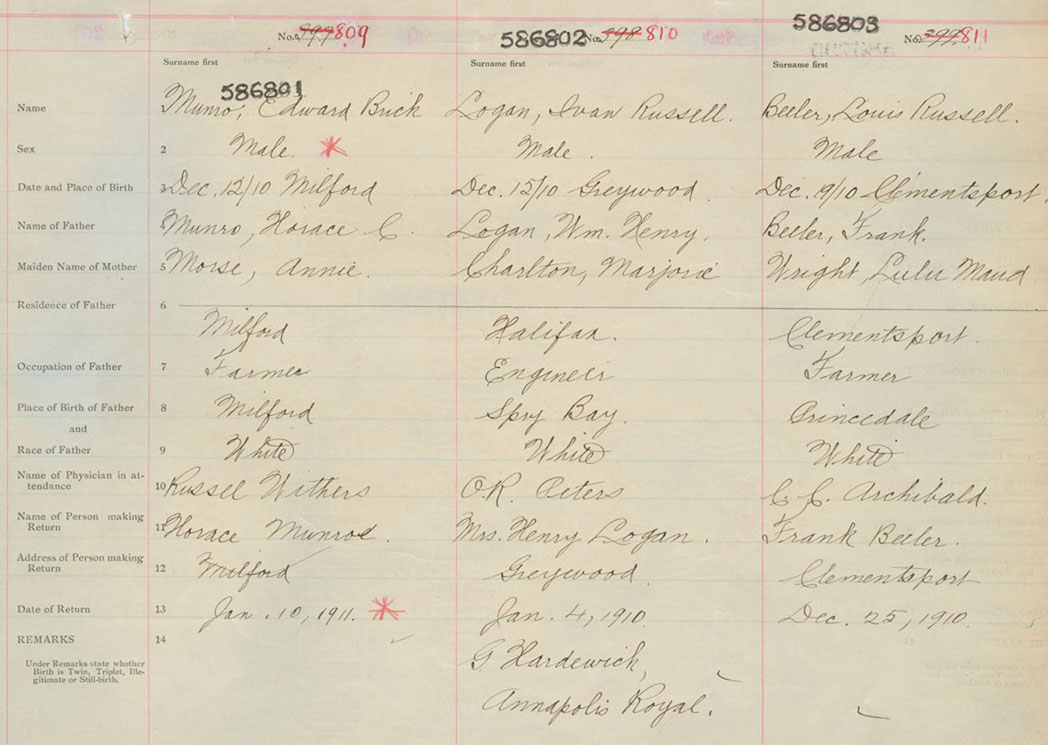 No. 397 809 586802 No. 398 810 586803 No. 399 811
Surname first Surname first Surname first
586801
Name Munro, Edward Brick Logan, Ivan Russell. Beeler, Louis Russell.
Sex 2 Male. Male. Male
Date and Place of Birth 3 Dec. 12/10 Milford Dec. 15/10 Greywood Dec. 9/10 Clementsport,
Name of Father Munro, Horace C. Logan, Wm. Henry. Beeler, Frank.
Maiden Name of Mother 5 Morse, Annie. Charlton, Marjorie Wright, Lulu Maud
Residence of Father 6
Milford Halifax. Clementsport.
Occupation of Father 7 Farmer Engineer Farmer
Place of Birth of Father 8 Milford Spry Bay. Princedale
and
Race of Father 9 White White White
Name of Physician in at-
tendance 10 Russel Withers O.R. Peters C. C. Archibald.
Name of Person making
Return 11 Horace Munroe. Mrs. Henry Logan. Frank Beeler.
Address of Person making
Return 12 Milford Greywood Clementsport
Date of Return 13 Jan. 10, 1911. Jan. 4, 1910. Dec. 25, 1910.
REMARKS 14
G Hardewick,
Under Remarks state whether
Birth is Twin, Triplet, Ille-
gitimate or Still-birth.
Annapolis Royal.